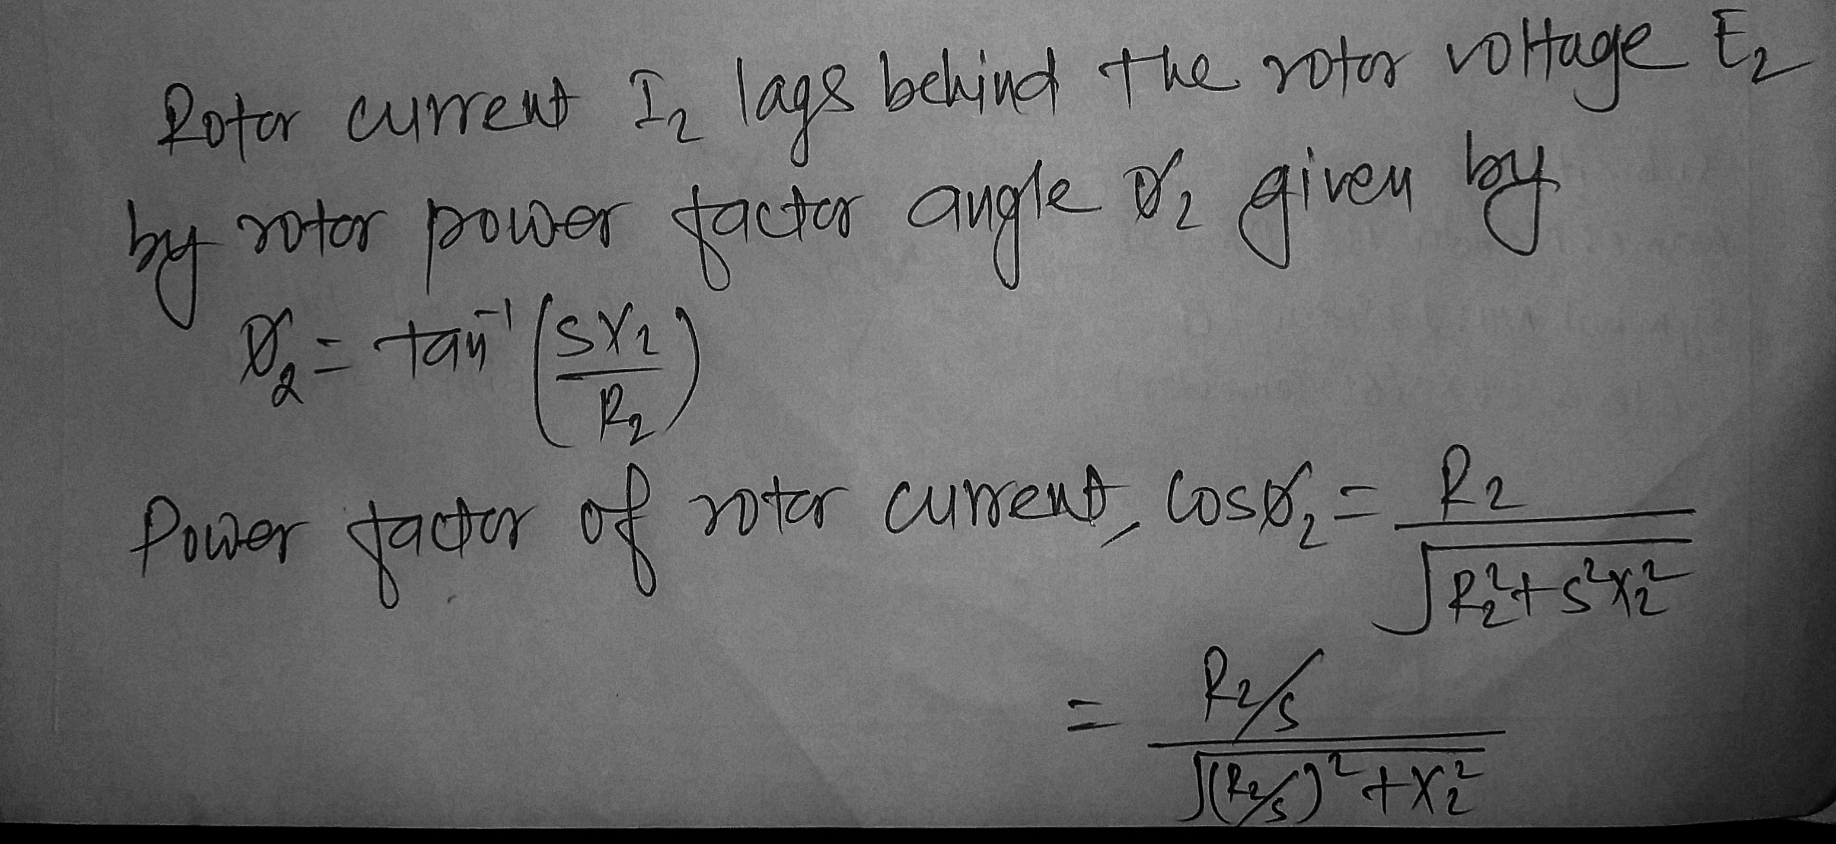 Rotor current I₂ lags behind the rotor voltage E₂
by rotor power factor angle Ø₂ given by
Ø₂ = tan⁻¹ (SX₂/R₂)
Power factor of rotor current, cosØ₂ = R₂/√(R₂² + S²X₂²)
= (R₂/S)/√((R₂/S)² + X₂²)